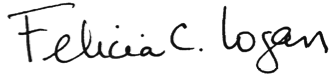 Felicia C. Logan